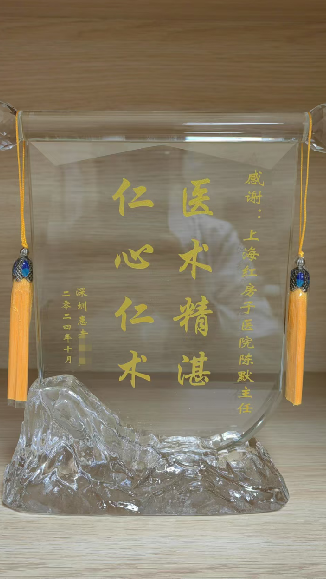 感谢：上海红房子医院陈默主任
医术精湛
仁心仁术
深圳患者
二零二四年十月